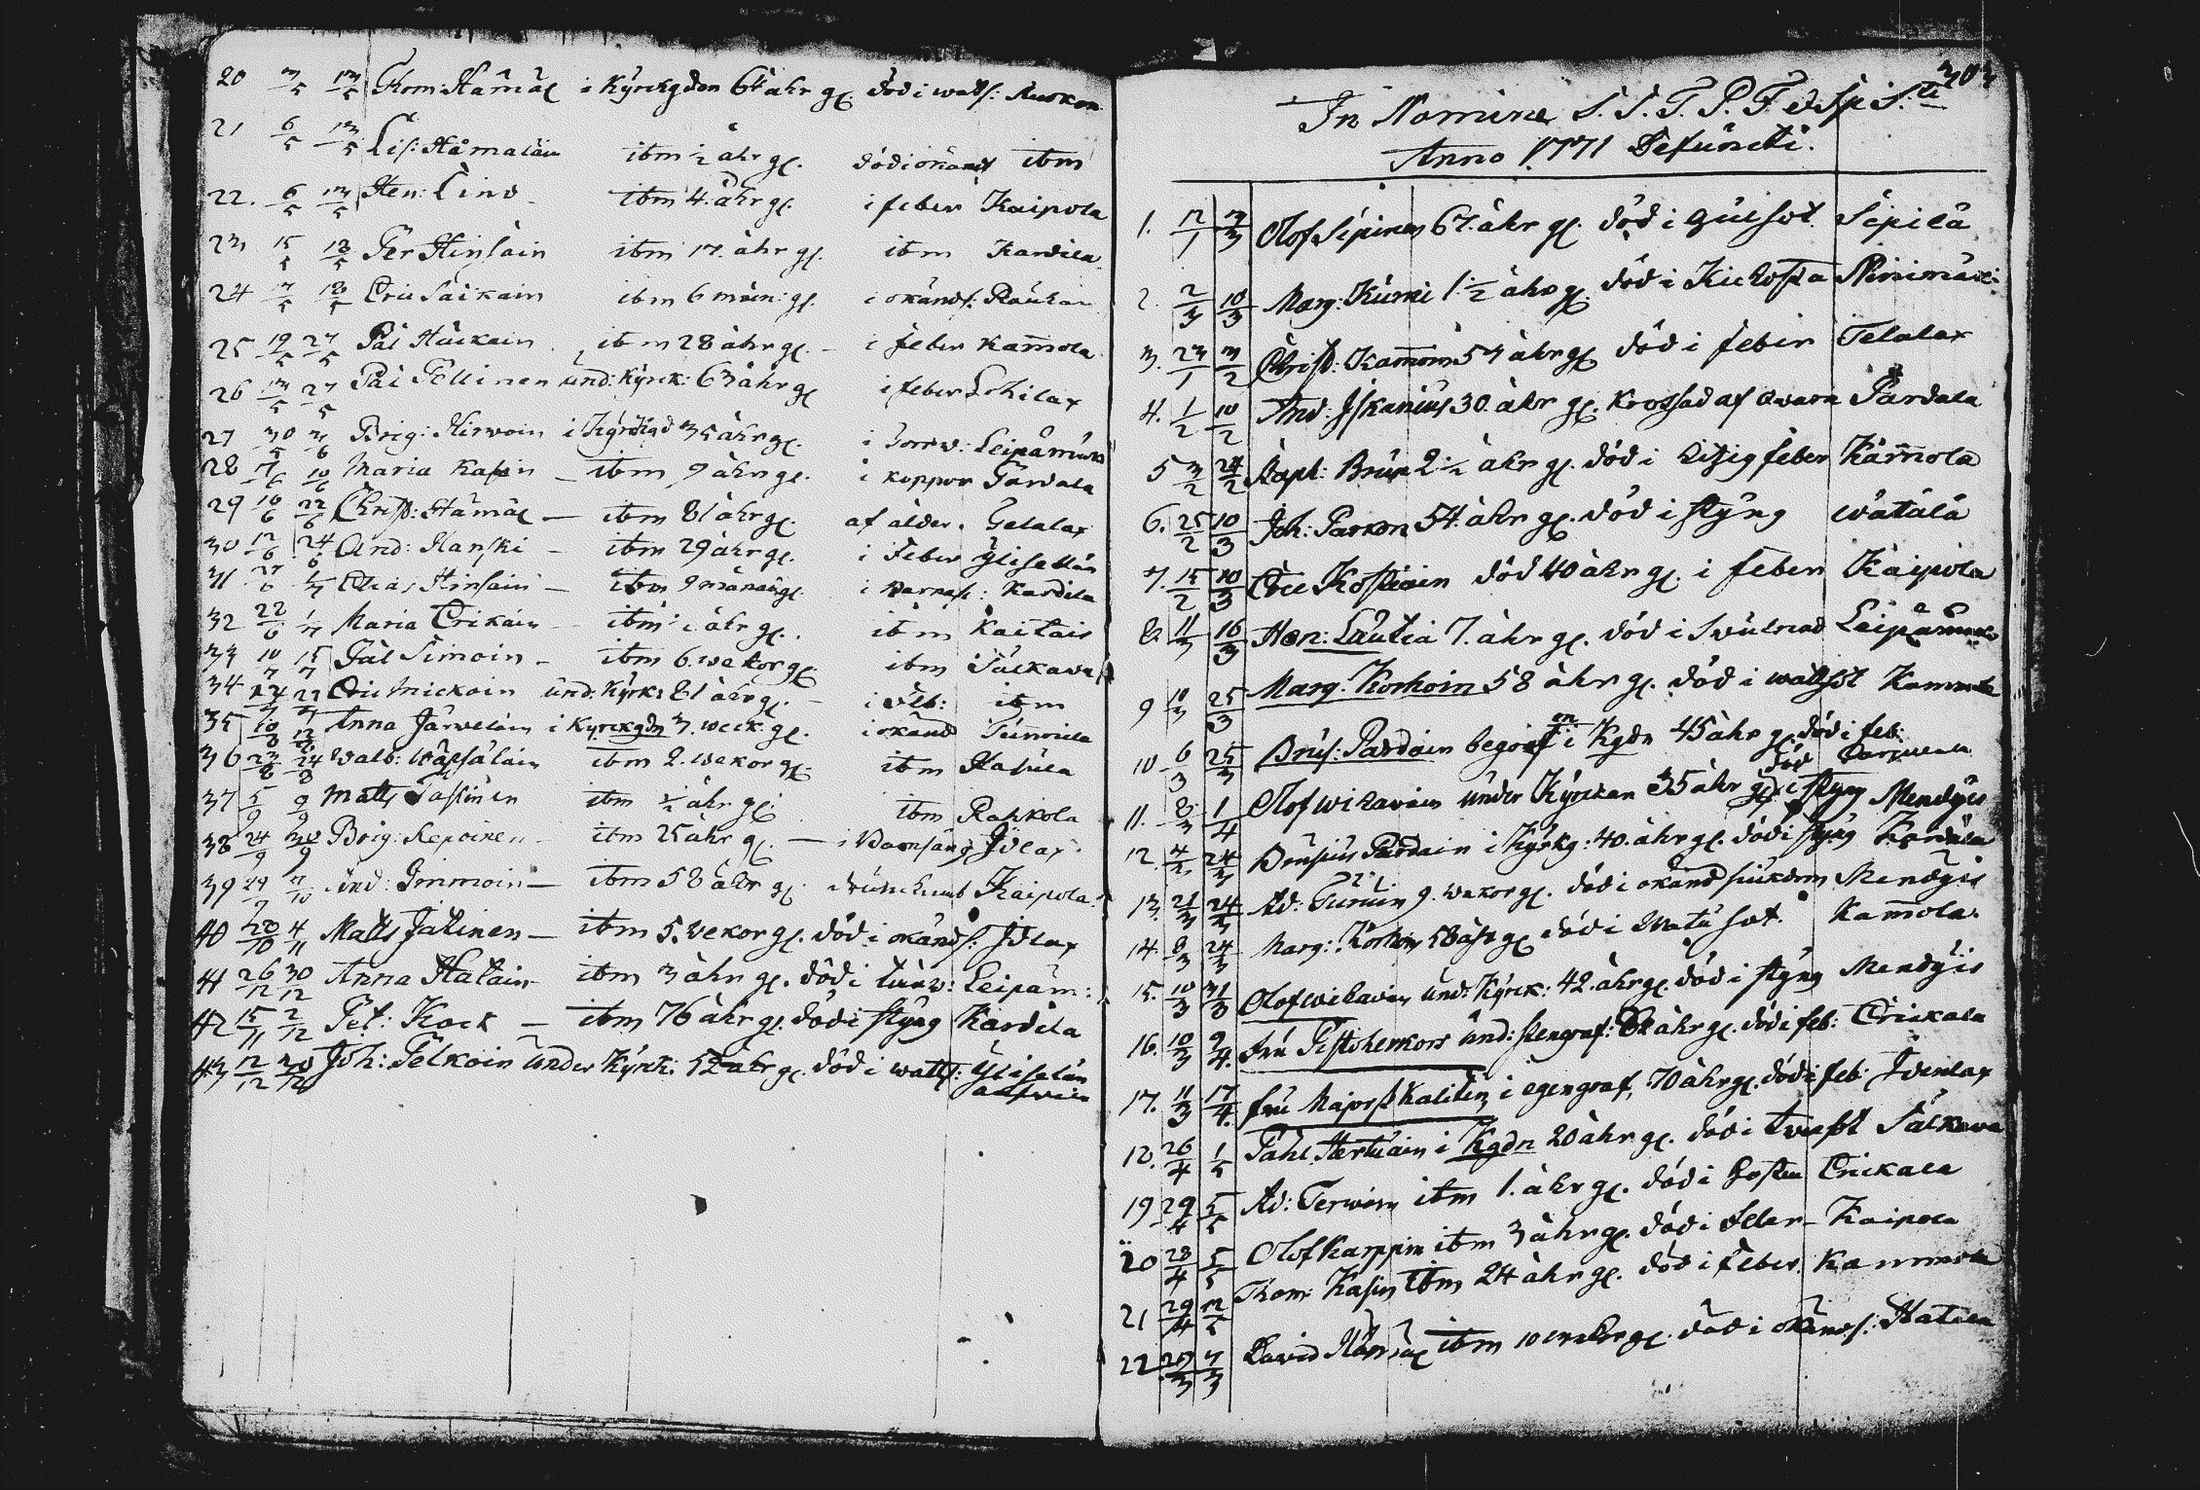 20 3/5 13/5 Thom: Hämäl i Kyrckgdon 64 åhr gl. död i watts: Ruokon
21 6/5 13/5 Lis: Hämaläin ibm ½ åhr gl. död i okändt ibm
22. 6/5 13/5 Hen: Lind - ibm 4. åhr gl. i feber Kaipola
23 15/5 18/5 Per Hinsäin ibm 17. åhr gl. ibm Kardila
24 17/5 18/5 Eric Säikäin ibm 6 mån: gl. i okänds:
25 19/5 27/5 Pål Häckäin ibm 28 åhr gl. - i feber Kam̄ola
26 13/5 27/5 Pål Pellinen und: Kyrck: 63 åhr gl i feber Lohilax
27 30/5 3/6 Brig: Hirwoin i Kyrckgd 35 åhr gl. i Leipämäki
28 7/6 10/6 Maria Kasin - ibm 9 åhr gl. i koppor Pardala
29 16/6 22/6 Christ: Hämäl - ibm 81 åhr gl. af ålder. Telalax
30 12/6 24/6 And: Hanski - ibm 29 åhr gl. i Feber Yliselän
31 27/6 1/7 Elias Hinsäin - ibm 9 månad gl. i Barnsl: Kardila
32 22/6 1/7 Maria Erikäin - ibm åhr gl. ibm Kaitais
33 10/7 15/7 Pål Simoin - ibm 6. wekor gl. ibm Sälkäwa
34 22/7 Eric Mickoin und: Kyrk: 81 åhr gl. - i Feb: ibm
35 10/8 12/8 Anna Järweläin i Kyrckgdn 3. weck: gl. i okänd
36 23/8 24/8 Walb: Wäisäläin ibm 2. wekor gl. ibm Hasula
37 5/9 9/9 Matts Tassinen ibm ½ åhr gl. ibm Rahkola
38 24/9 30/9 Brig: Repoinen - ibm 25 åhr gl. - i Barnsäng Idlax
39 29/9 7/10 And: Immoin - ibm 58 åhr gl. Kaipola
40 28/10 4/11 Matts Jätinen - ibm 5. wekor gl. död i okänds: Idlax
41 26/12 30/12 Anna Hatain - ibm 3 åhr gl. död i Leipäm:
42 15/11 2/12 Pet: Kock - ibm 76 åhr gl. död i styng Kardila
43 12/12 30/12 Joh: Pelkoin under Kyrck: 52 åhr gl. död i watts: Yliselän
303
In Nomine S. S. T. P. F. & Sp. S:ti
Anno 1771 Defuncti.
1. 12/1 Olof Sipinen 67. åhr gl. död i gulsot Sipilä
2. 2/3 10/3 Marg: Kurki 1 ½ åhr gl. död i Kickosta Ninimäki
3. 23/1 3/2 Christ: Kam̄oin 53 åhr gl. död i feber Telalax
4. 1/2 10/2 And: Iskanius 30. åhr gl. Krossad af Qwarn Pardala
5 3/2 24/2 Steph: Brun 2 ½ åhr gl. död i hitzig feber Kam̄ola
6. 25/2 10/3 Joh: Parkon 54. åhr gl. död i styng Wätälä
7. 15/2 10/3 Eric Kostiain död 40 åhr gl. i feber Kaipola
8. 11/3 16/3 Hen: Lautia 7. åhr gl. död i Swulnad Leipämäki
9 10/3 25/3 Marg: Korhoin 58 åhr gl. död i wattsot Kammola
10 6/3 25/3 Brus: Pardain begrof en i Kgdn 45 åhr gl. död i feb:
11. 8/3 1/4 Olof Wihavain under Kyrckan 35 åhr gl. död i styng Mendyis
12. 4/3 24/3 Brusius Pardain i Kyrkg: 40. åhr gl. död i styng Kardila
13. 21/3 24/3 Ad: Turuin 9. wekor gl. död i okänd siukdom Mendyis
14. 8/3 24/3 Marg: Korhoin 58 åhr gl död i Watu sot. Kam̄ola
15. 10/3 31/3 Olof Wihavain und: Kyrck: 42. åhr gl. död i styng Mendyis
16. 10/3 9/4. fru Pistolenkors und: stengraf: 82 åhr gl. död i feb: Erickala
17. 11/3 17/4. fru Majorsk Kalitin i egen graf, 70 åhr gl. död i feb: Idenlax
18. 26/4 1/5 Påhl Hertuain i Kgdn 20 åhr gl. död i twesot Sälkäwa
19 29/4 5/5 Ad: Terwoin ibm 1. åhr gl. död i hostan Erickala
20 28/4 5/5 Olof Karppin ibm 3 åhr gl. död i feber - Kaipola
21 29/4 12/5 Thom: Kasin ibm 24 åhr gl. död i feber. Kammola
22 David ibm 10 wekor gl. död i okänds: